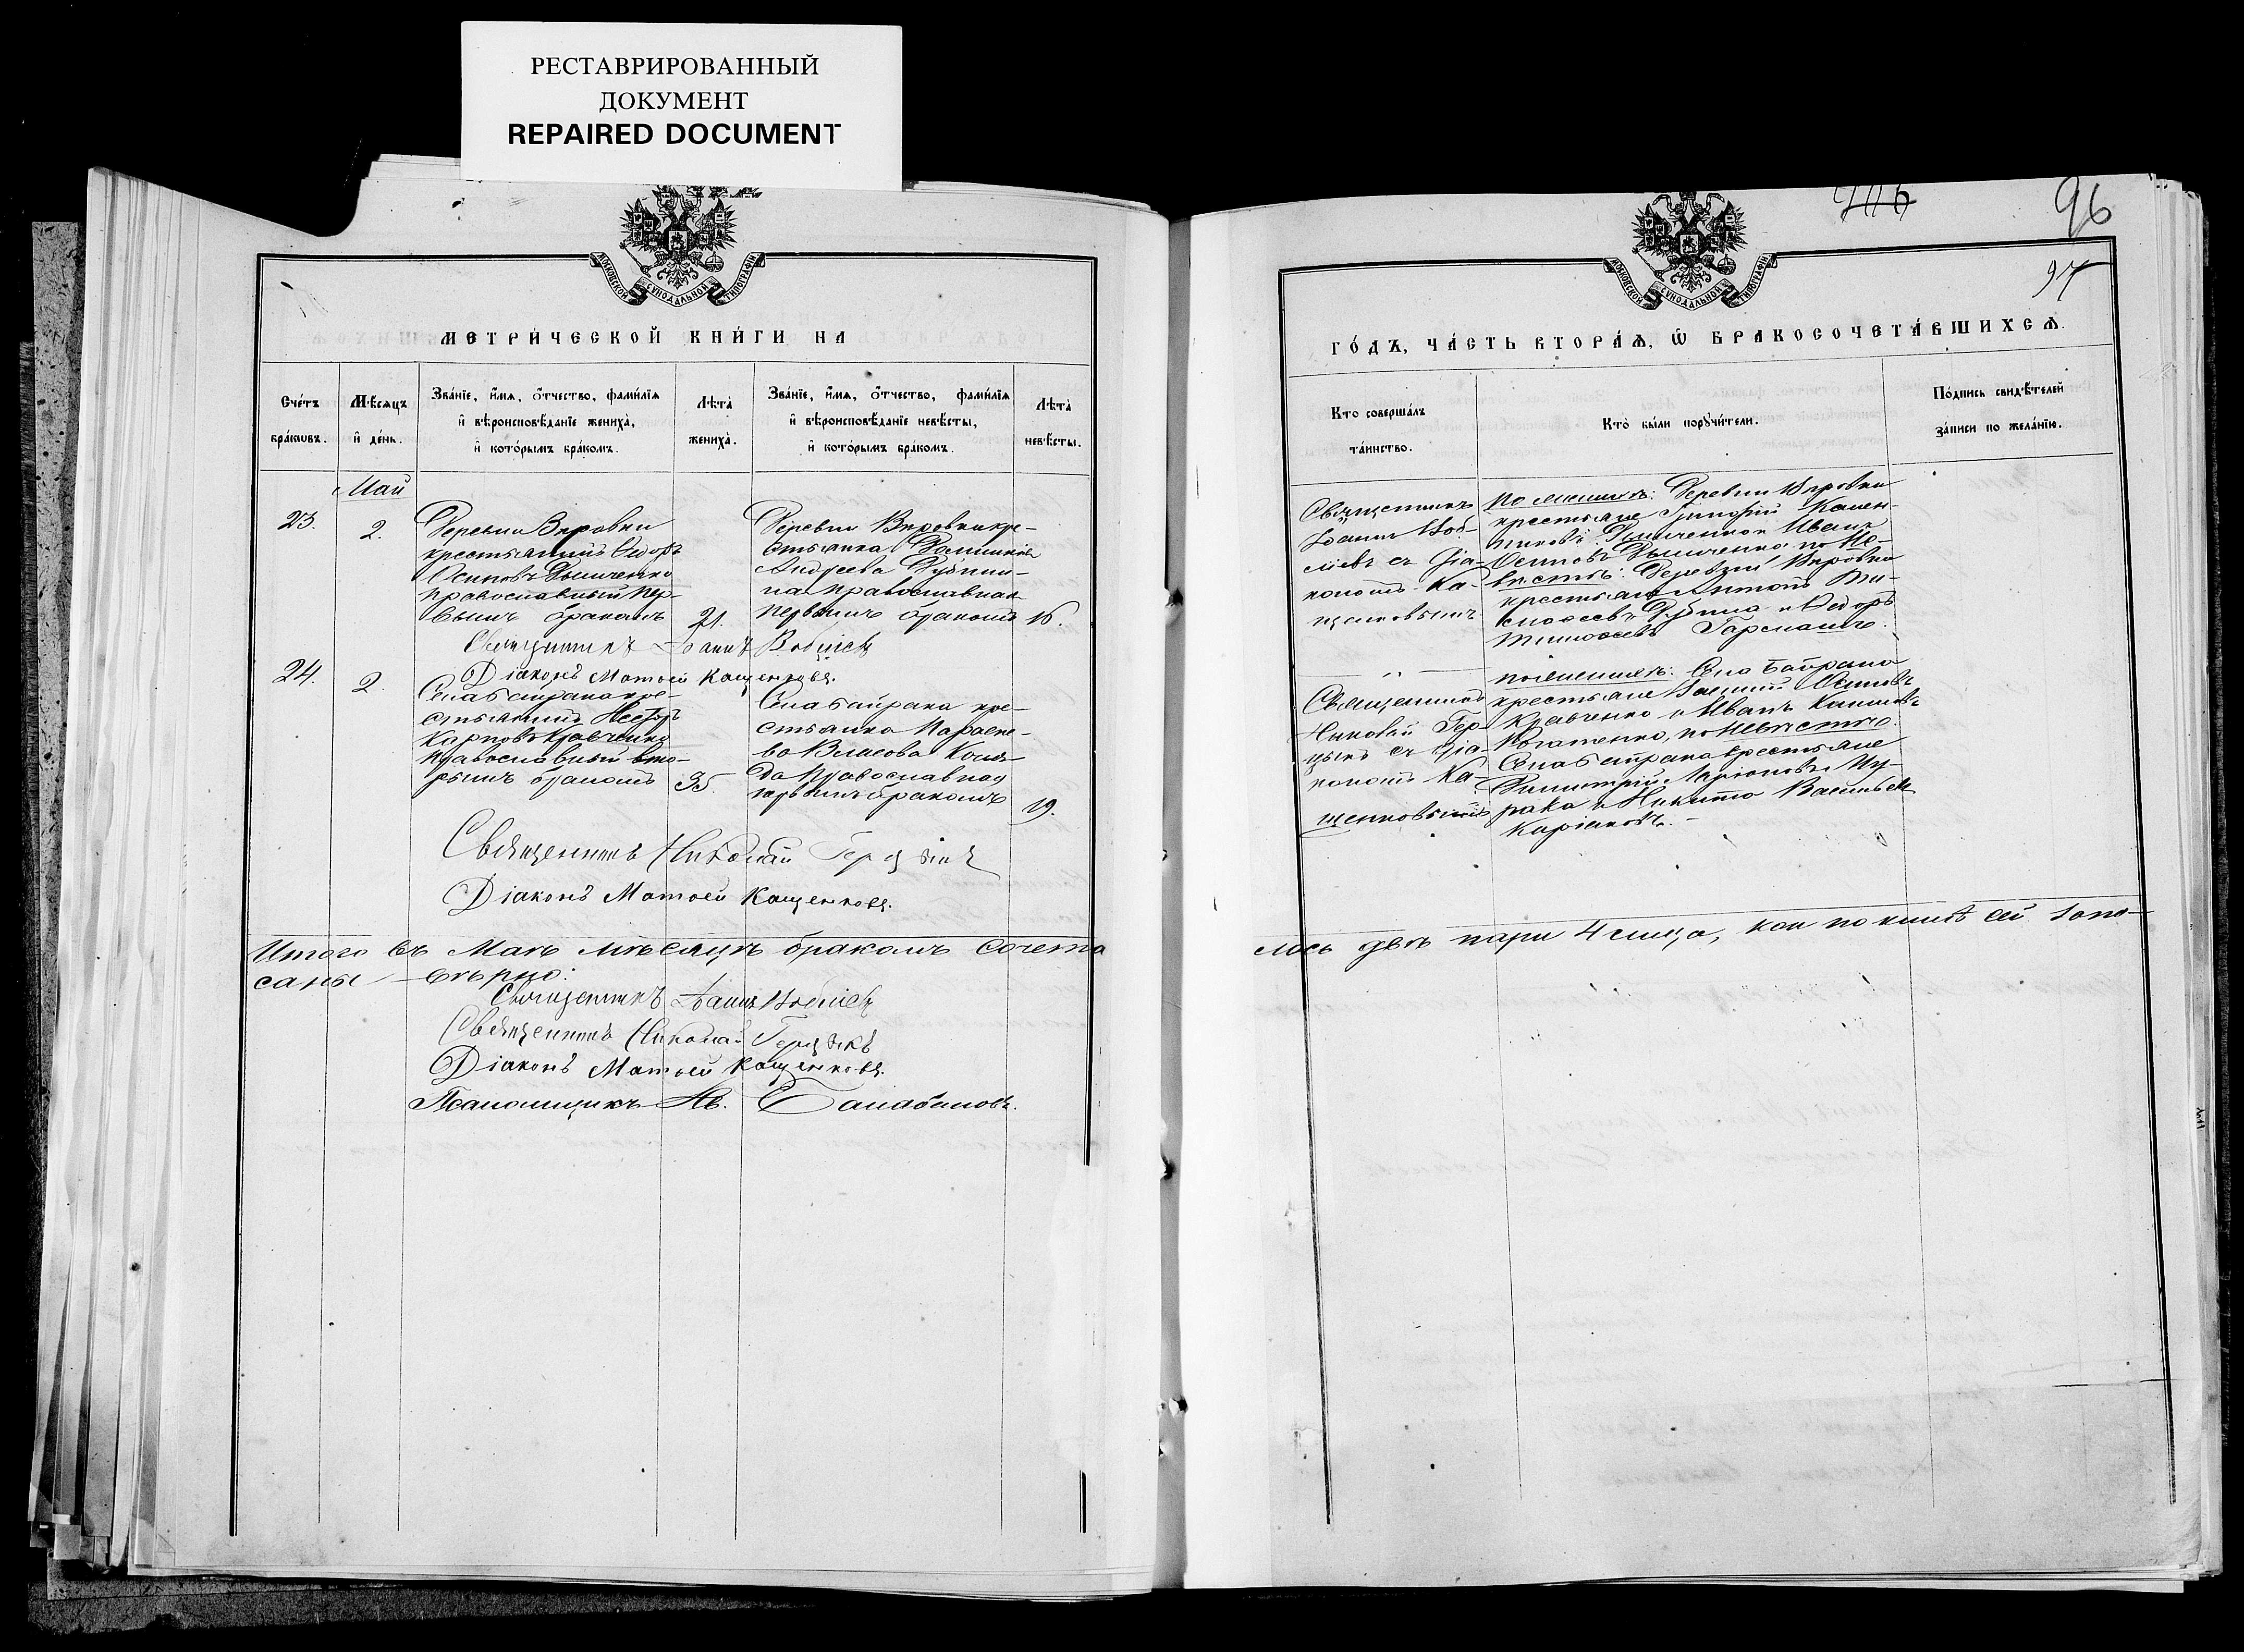 РЕСТАВРИРОВАННЫЙ
ДОКУМЕНТ
REPAIRED DOCUMENT
МОСКОВСКОЙ СУНОДАЛЬНОЙ ТИПОГРАФІИ
МЕТРИ́ЧЕСКОЙ КНИ́ГИ НА
Сче́тъ бра́кωвъ.
Мѣ́сяцъ и҆ де́нь.
Зва́нїе, и҆́мя, ѻ҆́тчество, фами́лїя
и҆ вѣроисповѣ́данїе жениха̀,
и҆ кото́рымъ бра́комъ.
Лѣта̀ жениха̀.
Зва́нїе, и҆́мя, ѻ҆́тчество, фами́лїя
и҆ вѣроисповѣ́данїе невѣ́сты,
и҆ кото́рымъ бра́комъ.
Лѣта̀ невѣ́сты.
Май
23.
2.
Деревни Вировки
крестьянинъ Ѳедоръ
Осиповъ Дымченко
православный пер-
вымъ бракомъ
21.
Деревни Вировки кре-
стьянка
Андреева Дубни-
на православная
первымъ бракомъ
16.
Священникъ Іоаннъ
Діаконъ Матѳей Кащенковъ.
24.
2.
Села Байрака кре-
стьянинъ Несторъ
Карповъ Кравченко
православный вто-
рымъ бракомъ
35.
Села Байрака кре-
стьянка Параске-
ва Власова Коля-
да православная
первымъ бракомъ
19.
Священникъ Николай Герцыкъ
Діаконъ Матѳей Кащенковъ.
Итого въ Маѣ мѣсяцѣ бракомъ сочета
саны вѣрно:
Священникъ Іоаннъ
Священникъ Николай Герцыкъ
Діаконъ Матѳей Кащенковъ.
Псаломщикъ Ив. Балабановъ.
206
96
97
МОСКОВСКОЙ СУНОДАЛЬНОЙ ТИПОГРАФІИ
ГО́ДЪ, ЧА́СТЬ ВТОРА́Я, Ѡ҆ БРАКОСОЧЕТА́ВШИХСЯ.
Кто соверша́лъ
та́инство.
Кто̀ бы́ли порꙋчи́тели.
По́дпись свидѣ́телей
за́писи по жела́нїю.
Священникъ
Іоаннъ
съ Діа-
кономъ Ка-
щенковымъ
по женихѣ: Деревни Вировки
крестьяне Григорій
Иванъ
Осиповъ Дымченко, по Не-
вѣстѣ: Деревни Вировки
крестьяне Антонъ
Дубина и Ѳедоръ
Тимоѳеевъ
Священникъ
Николай Гер-
цыкъ съ Діа-
кономъ Ка-
щенковымъ
по женихѣ: Села Байрака
крестьяне Осиповъ
Кравченко и Иванъ
по Невѣстѣ:
Села Байрака крестьяне
Димитрій
и Никита Васильевъ
лось двѣ пары 4 лица, кои по книгѣ сей запи-